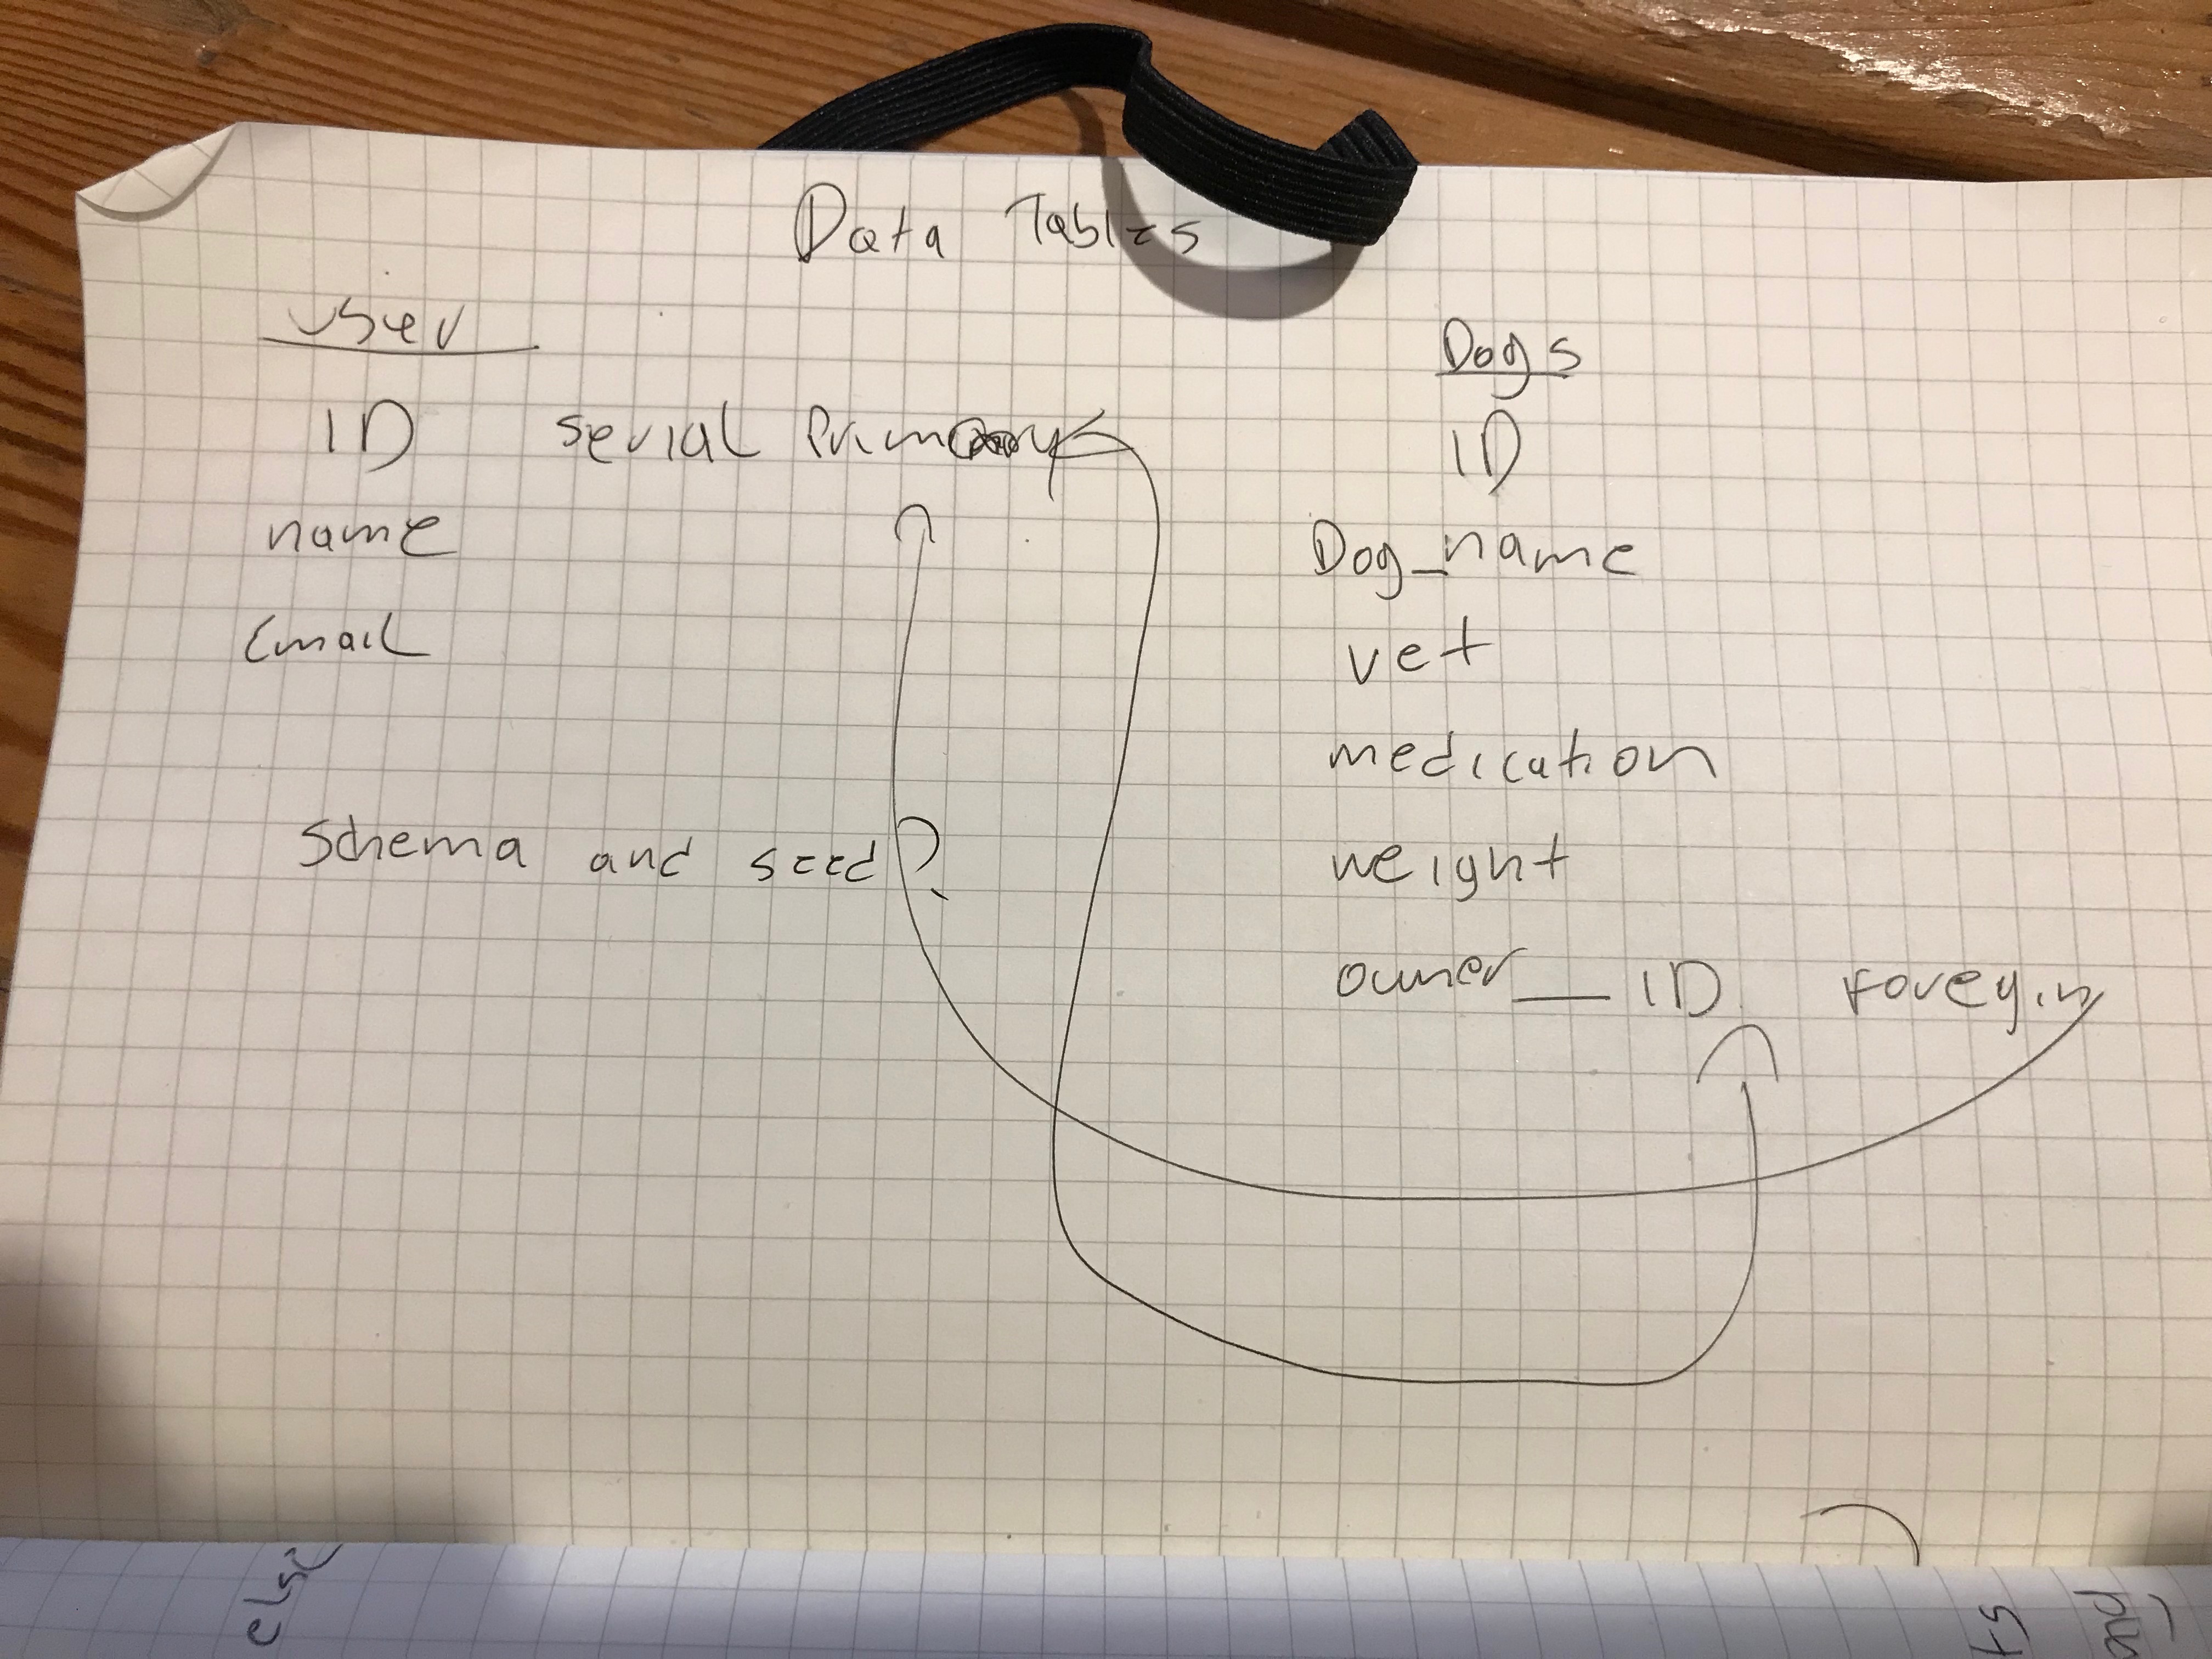 Data Tables
user
ID serial Primary
name
Email
Schema and seed?
Dogs
ID
Dog_name
vet
medication
weight
owner__ID foreyin
else
ts